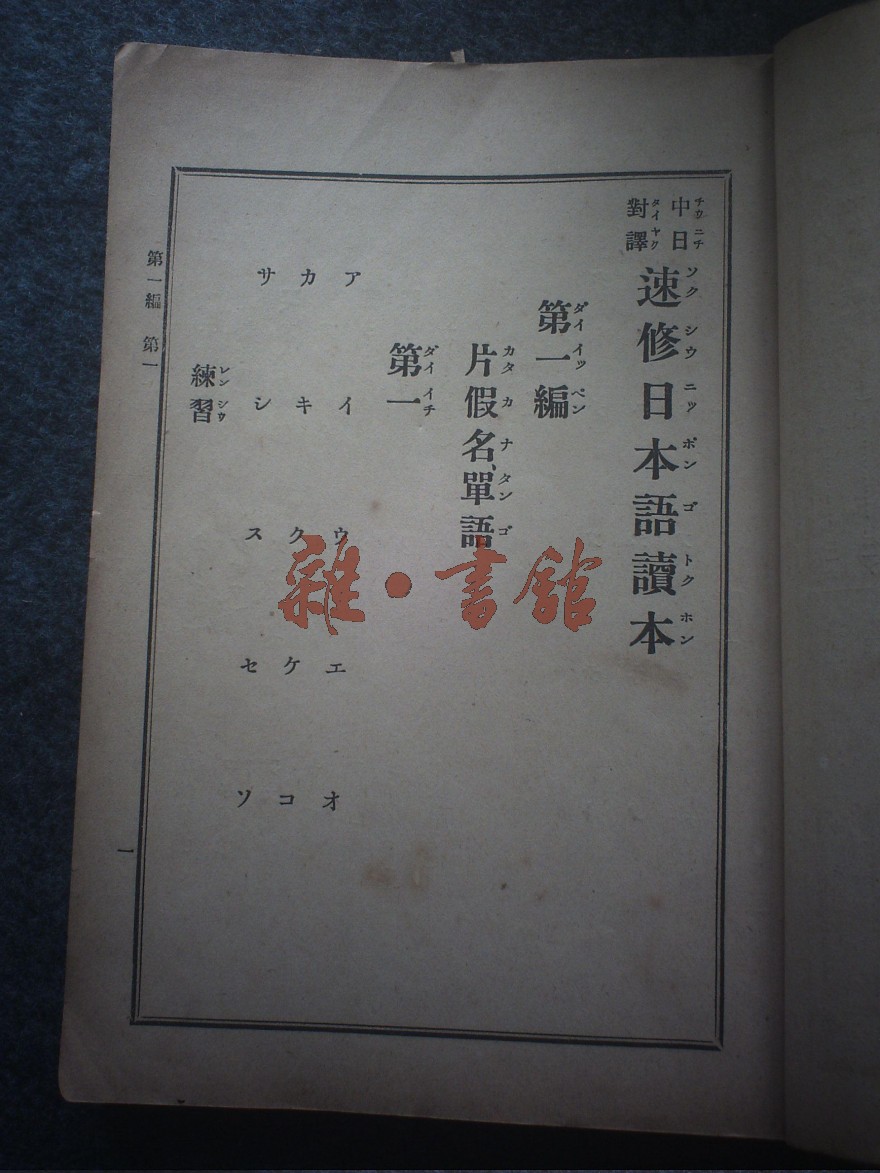 中日
對譯
チウニチ
タイヤク
速修日本語讀本
ソクシウニッポンゴトクホン
第一編
ダイイッペン
片假名、單語
カタカナタンゴ
第一
ダイイチ
アイウエオ
カキクケコ
サシスセソ
練習
レンシウ
第一編 第一
一
雜·書館